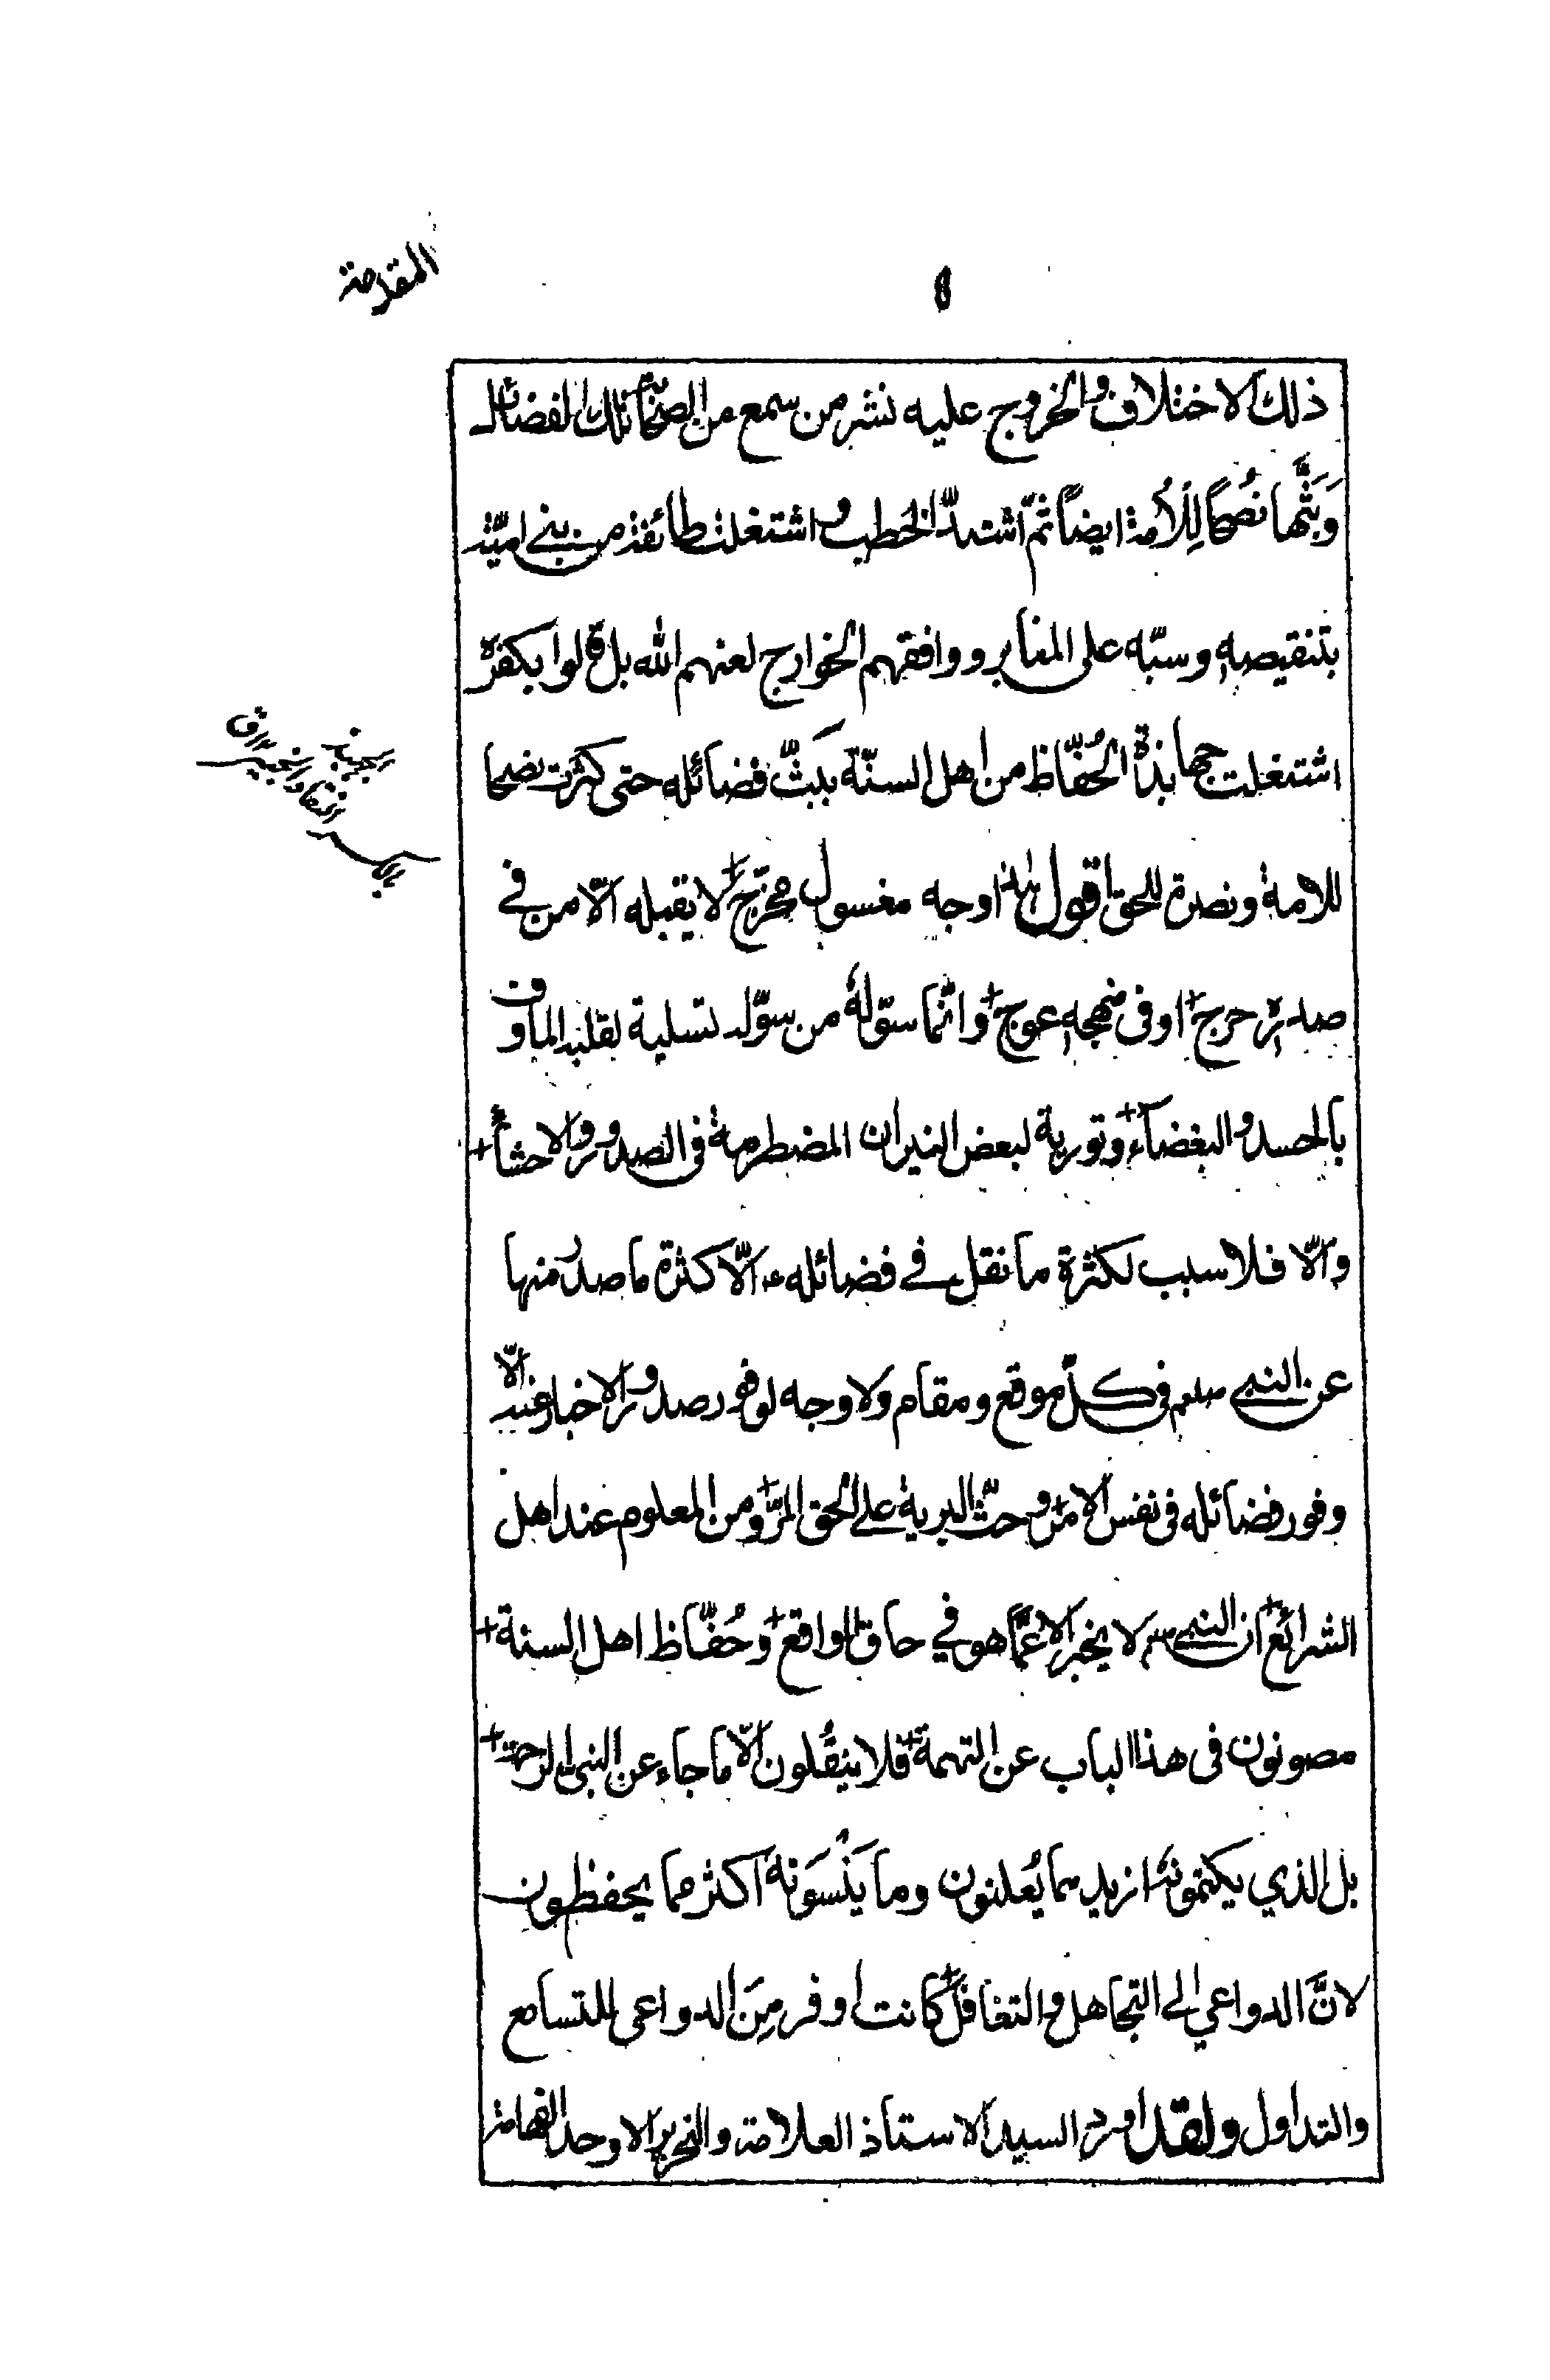 المقدمة
ذلك الاختلاف والخروج عليه نشر من سمع من الصحابة تلك الفضائل
وَبَثَّها نُصحًا لِلأمة ايضًا ثمّ اشتدّ الخطب واشتغلت طائفة من بني اميّة
بتنقيصه وسبّه على المنابر ووافقهم الخوارج لعنهم الله بل قالوا بكفره
اشتغلت جهابذة الحُفّاظ من اهل السنّة بِبَثِّ فضائله حتى كثرت نصحا
للامة ونصرة للحق اقول هذا وجه مغسول مخرّج لا يقبله الّا من في
صدره حرج او في منهجه عوج وانّما سوّلهُ من سوّله تسلية لقلبه الماوف
بالحسد والبغضآء وتورية لبعض النيران المضطرمة في الصدور والاحشاء
والّا فلا سبب لكثرة ما نقل في فضائله ع الّا كثرة ما صدر منها
عن النبي صلعم في كلّ موقع ومقام ولا وجه لوفور صدور الاخبار عنه الّا
وفور فضائله في نفس الامر وحثّ البرية على الحق المرّ ومن المعلوم عند اهل
الشرائع ان النبي صلعم لا يخبر الا عمّا هو في حاق الواقع وحُفّاظ اهل السنة
مصونون في هذا الباب عن التهمة فلا ينقُلون الّا ما جاء عن النبي الرحمة
بل الذي يكتمونه ازيد مما يُعلنون وما يَنْسَونه اكثر مما يحفظون
لانَّ الدواعي الى التجاهل والتغافل كانت اوفر مِنَ الدواعي للتسامع
والتداول ولقد اورد السيد الاستاذ العلامة والنحرير الاوحد الفهامة